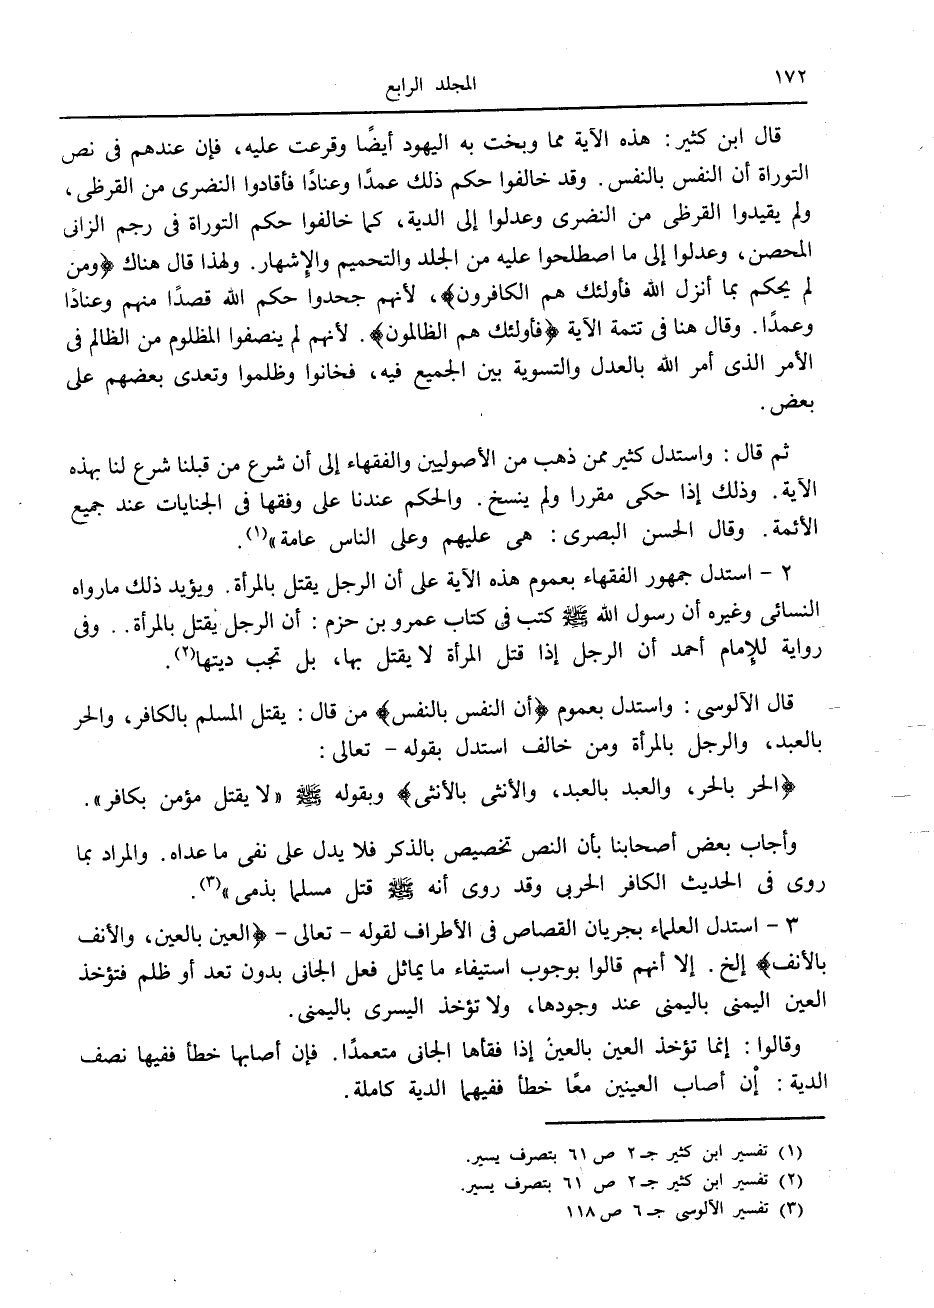 ١٧٢
المجلد الرابع
قال ابن كثير : هذه الآية مما وبخت به اليهود أيضًا وقرعت عليه، فإن عندهم فى نص
التوراة أن النفس بالنفس. وقد خالفوا حكم ذلك عمدًا وعنادًا فأقادوا النضرى من القرظى،
ولم يقيدوا القرظى من النضرى وعدلوا إلى الدية، كما خالفوا حكم التوراة فى رجم الزانى
المحصن، وعدلوا إلى ما اصطلحوا عليه من الجلد والتحميم والإشهار. ولهذا قال هناك ﴿ومن
لم يحكم بما أنزل الله فأولئك هم الكافرون﴾، لأنهم جحدوا حكم الله قصدًا منهم وعنادًا
وعمدًا. وقال هنا فى تتمة الآية ﴿فأولئك هم الظالمون﴾. لأنهم لم ينصفوا المظلوم من الظالم فى
الأمر الذى أمر الله بالعدل والتسوية بين الجميع فيه، فخانوا وظلموا وتعدى بعضهم على
بعض.
ثم قال : واستدل كثير ممن ذهب من الأصوليين والفقهاء إلى أن شرع من قبلنا شرع لنا بهذه
الآية. وذلك إذا حكى مقررا ولم ينسخ. والحكم عندنا على وفقها فى الجنايات عند جميع
الأئمة. وقال الحسن البصرى : هى عليهم وعلى الناس عامة»(١).
٢ - استدل جمهور الفقهاء بعموم هذه الآية على أن الرجل يقتل بالمرأة. ويؤيد ذلك مارواه
النسائى وغيره أن رسول الله ﷺ كتب فى كتاب عمرو بن حزم : أن الرجل يقتل بالمرأة.. وفى
رواية للإمام أحمد أن الرجل إذا قتل المرأة لا يقتل بها، بل تجب ديتها(٢).
قال الآلوسى : واستدل بعموم ﴿أن النفس بالنفس﴾ من قال : يقتل المسلم بالكافر، والحر
بالعبد، والرجل بالمرأة ومن خالف استدل بقوله - تعالى :
﴿الحر بالحر، والعبد بالعبد، والأنثى بالأنثى﴾ وبقوله ﷺ «لا يقتل مؤمن بكافر».
وأجاب بعض أصحابنا بأن النص تخصيص بالذكر فلا يدل على نفى ماعداه. والمراد بما
روى فى الحديث الكافر الحربى وقد روى أنه ﷺ قتل مسلما بذمى»(٣).
٣ - استدل العلماء بجريان القصاص فى الأطراف لقوله - تعالى - ﴿العين بالعين، والأنف
بالأنف﴾ إلخ. إلا أنهم قالوا بوجوب استيفاء ما يماثل فعل الجانى بدون تعد أو ظلم فتؤخذ
العين اليمنى باليمنى عند وجودها، ولا تؤخذ اليسرى باليمنى.
وقالوا : إنما تؤخذ العين بالعين إذا فقأها الجانى متعمدًا. فإن أصابها خطأ ففيها نصف
الدية : إن أصاب العينين معًا خطأ ففيهما الدية كاملة.
(١) تفسير ابن كثير جـ٢ ص ٦١ بتصرف يسير.
(٢) تفسير ابن كثير جـ٢ ص ٦١ بتصرف يسير.
(٣) تفسير الآلوسى جـ٦ ص١١٨